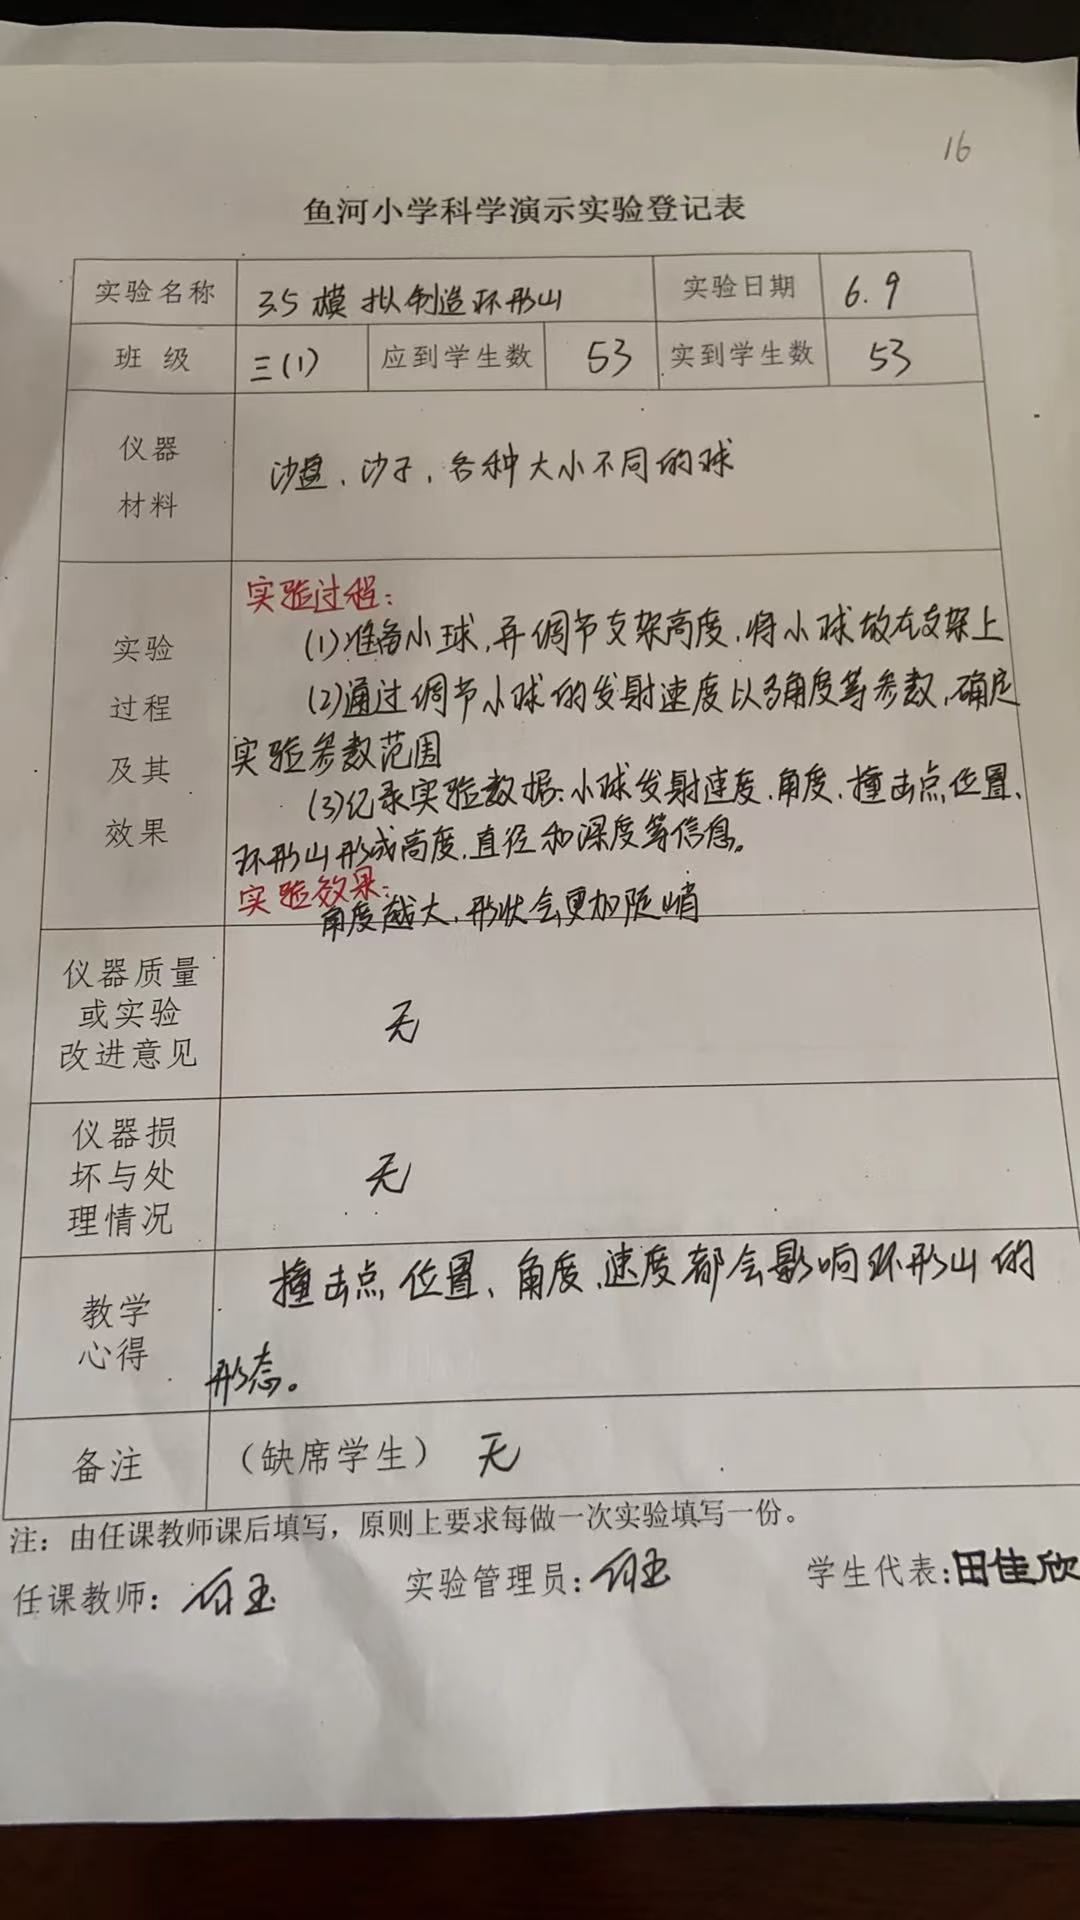 16
鱼河小学科学演示实验登记表
实验名称 3.5 模拟制造环形山 实验日期 6.9
班 级 三(1) 应到学生数 53 实到学生数 53
仪器
材料
沙盘、沙子、各种大小不同的球
实验
过程
及其
效果
实验过程:
(1)准备小球,并调节支架高度,将小球放在支架上
(2)通过调节小球的发射速度以及角度等参数,确定
实验参数范围
(3)纪录实验数据:小球发射速度、角度、撞击点位置、
环形山形成高度、直径和深度等信息。
实验效果:
角度越大,形状会更加陡峭
仪器质量
或实验
改进意见
无
仪器损
坏与处
理情况
无
教学
心得
撞击点位置、角度、速度都会影响环形山的
形态。
备注 (缺席学生) 无
注:由任课教师课后填写,原则上要求每做一次实验填写一份。
任课教师: 实验管理员: 学生代表:田佳欣